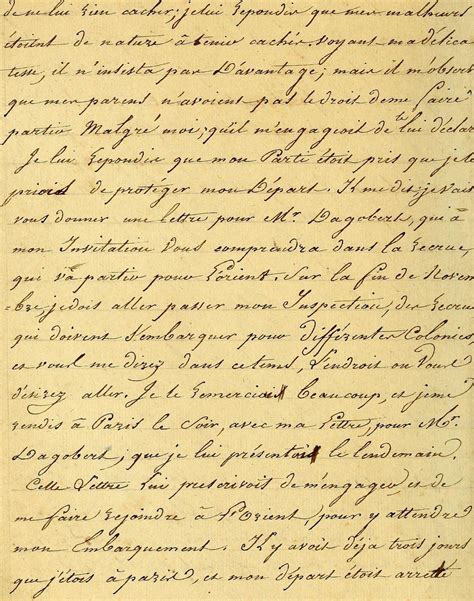 de ne lui rien cacher; je lui repondis que mes malheurs
étoient de nature à tenir cachés. voyant ma délica
tesse, il n'insista pas D'avantage; mais il m'observ
que mes parens n'avoient pas le droit de me faire
partir Malgré moi; qu'il m'engageoit de lui déclar
Je lui repondis que mon Parti étoit pris que je te
priois de protéger mon Départ. Il me dit; je vais
vous donner une lettre pour Mr. Dagobert, qui à
mon Invitation vous comprendra dans la recrue,
qui va partir pour L'orient. Sur la fin de Novem
=bre, je dois aller passer mon Inspection, des recrues
qui doivent s'embarquer pour différentes Colonies,
et vous me direz dans ce tems, l'endroit ou vous
désirez aller. Je le remerciai beaucoup, et je me
rendis à Paris le Soir, avec ma Lettre, pour Mr.
Dagobert; que je lui présentois le lendemain.
Cette Lettre lui prescrivoit de m'engager, et de
me faire rejoindre à L'orient, pour y attendre
mon Embarquement. Il y avoit déja trois jours
que j'étois à paris, et mon départ étoit arretté